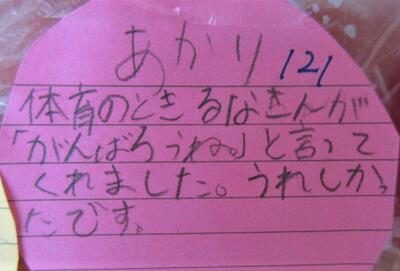 あかり 121
体育のときるなさんが
「がんばろうね。」と言って
くれました。うれしかっ
たです。